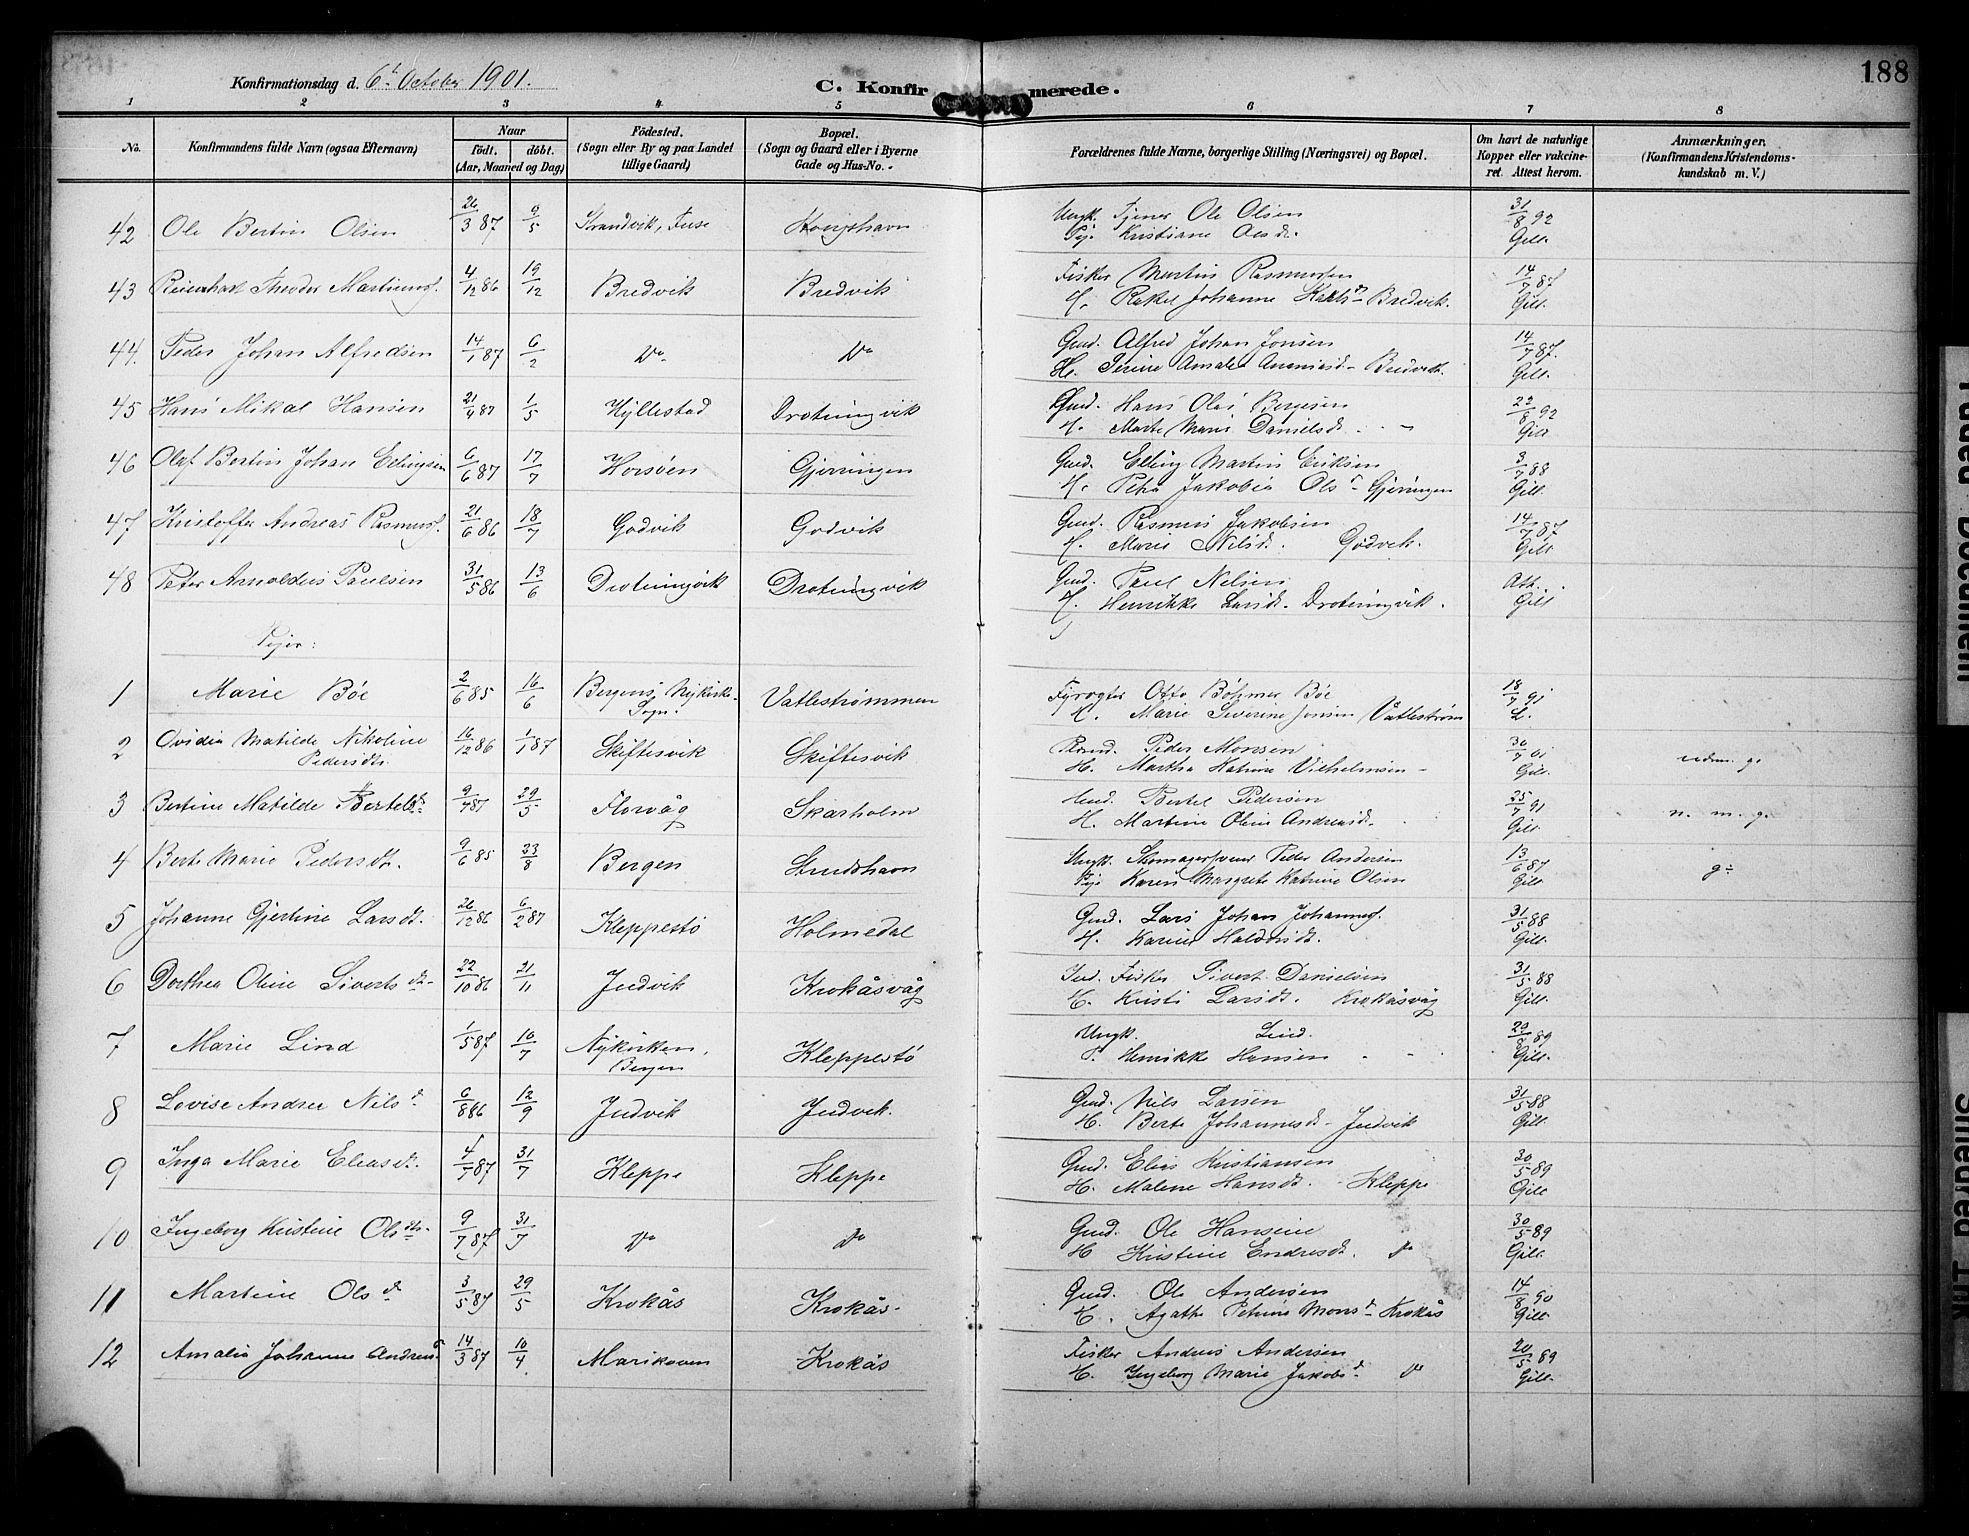 188
Konfirmationsdag d. 6t October 1901.
C. Konfirmerede.
1 2 3 4 5 6 7 8
No. Konfirmandens fulde Navn (ogsaa Efternavn) Naar födt. döbt. (Aar, Maaned og Dag) Födested. (Sogn eller By og paa Landet tillige Gaard) Bopæl. (Sogn og Gaard eller i Byerne Gade og Hus-No. Forældrenes fulde Navne, borgerlige Stilling (Næringsvei) og Bopæl. Om havt de naturlige Kopper eller vakcineret. Attest herom. Anmærkninger. (Konfirmandens Kristendomskundskab m. V.)
42 Ole Bertin Olsen 26/3 87 9/5 Strandvik, Fuse Ungk. Tjener Ole Olsen 31/8 92
Pige Kristiane Gill.
43 Theodor 4/12 86 19/12 Bredvik Bredvik Fisker Martin Rasmussen 14/7 87
H. Rakel Johanne Bredvik. Gill.
44. Peder Johan Alfredsen 14/1 87 6/2 Do Do Gmd. Alfred Johan Jonsen 14/7 87.
H. Serine Amalie Ananiasd. Bredvik. Gill.
45 Hans Mikal Hansen 21/4 87 1/5 Hyllestad Drotningvik Gmd. Hans Olai Bergesen 22/8 92
H. Marte Marie Danielsdt. Gill
46 Olaf Bertin Johan Ellingsen 6/6 87 17/7 Horsöen Gjerningen Gmd. Elling Martin Eriksen 3/7 88
H. Petra Jakobia Olsd Gjerningen Gill.
47 Kristoffer Andreas Rasmuss. 21/6 86 18/7 Godvik Godvik Gmd. Rasmus Jakobsen 14/7 87
H. Marie Nilsd. Godvik. Gill.
48 Peter Arnoldus Paulsen 31/5 86 13/6 Drotningvik Drotningvik Gmd. Paul Nilsen Att.
H. Henrikke Larsd. Drotningvik. Gill
Piger:
1 Marie Böe 2/6 85 16/6 Bergens Nykirke- Sogn. Vatlestrømmen Fyrvogter Otto Böhmer Böe 18/7 91
H. Marie Severine Jensen Vatlestrøm L.
2 Ovidia Matilde Nikoline Pedersdtr. 16/12 86 1/1 87 Skiftesvik Skiftesvik Peder Monsen 30/7 01 udm. g.
H. Martha Katrine Vilhelmsen Gill.
3 Bertine Matilde Bertelsdt. 9/4 87 29/5 Florvåg Skarholm Bertel Pedersen 25/7 91 n. m. g.
H. Martine Oline Andreasd. Gill.
4 Berte Marie Pedersdt. 9/6 85 23/8 Bergen Ungk. Skomagersvend Peder Andersen 13/6 87 g.
Pige Karen Margrete Katrine Olsen Gill
5 Johanne Gjertine Larsdt. 26/12 86 6/2 87 Kleppestö Holmedal Gmd. Lars Johan Johanness. 31/5 88
H. Karine Gill.
6 Dorthea Oline Sivertsdt. 22/10 86 21/11 Indvik Krokåsvåg Ind. Fisker Sivert Danielsen 31/5 88
H. Kristi Larsdt. Krokåsvåg Gill.
7 Marie Lind 1/5 87 10/7 Nykirken, Bergen Kleppestö Ungk. Lind. 29/8 89
P. Henrikke Hansen Gill.
8 Lovise Andrea Nilsd 6/8 86 12/9 Indvik Indvik. Gmd. Nils Larsen 31/5 88
H. Berte Johannesd. Indvik Gill.
9 Inga Marie Eliasdt. 4/5 87 31/7 Kleppe Kleppe Gmd. Elias Kristiansen 30/5 89
H. Malene Hansdt. Kleppe Gill
10 Ingeborg Kristine Olsdtr. 9/7 87 31/7 Do Do Gmd. Ole Hansen 30/5 89
H Kristine Endresdt. Do Gill.
11 Martine Olsd 3/5 87 29/5 Krokås Krokås. Gmd. Ole Andersen 14/8 90
H. Agathe Petrine Monsd Krokås Gill.
12 Amalia Johanne Andreasd. 14/3 87 10/4 Marikoven Krokås Fisker Andreas Andersen 20/5 89
H. Ingeborg Marie Jakobsd Do Gill.